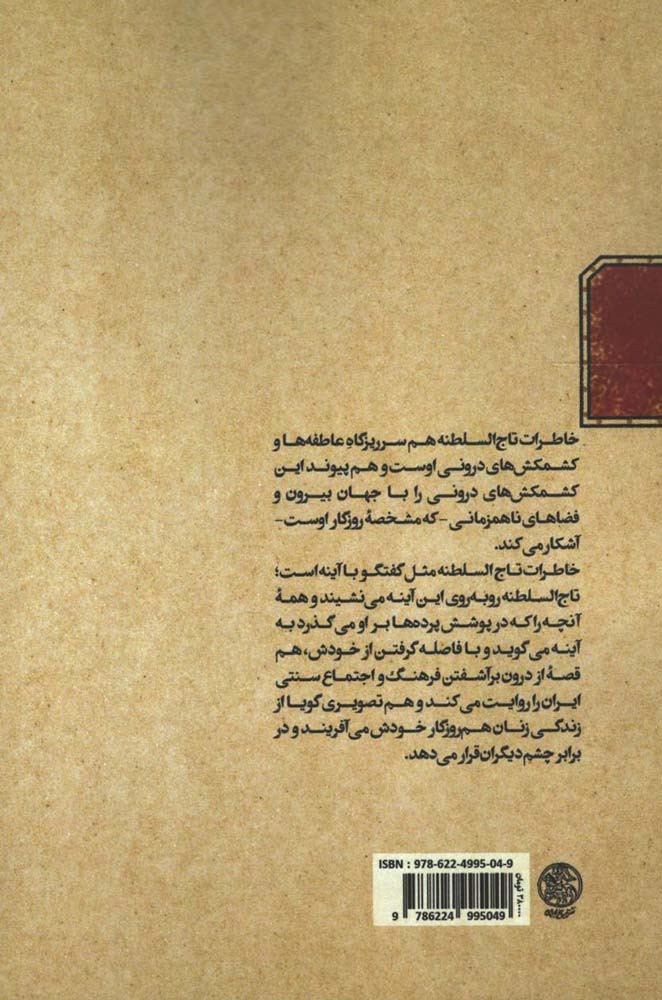 خاطرات تاج‌السلطنه هم سرریزگاهِ عاطفه‌ها و
کشمکش‌های درونی اوست و هم پیوند این
کشمکش‌های درونی را با جهان بیرون و
فضاهای ناهمزمانی -که مشخصهٔ روزگار اوست-
آشکار می‌کند.
خاطرات تاج السلطنه مثل گفتگو با آینه است؛
تاج‌السلطنه روبه‌روی این آینه می‌نشیند و همهٔ
آنچه را که در پوشش پرده‌ها بر او می‌گذرد به
آینه می‌گوید و با فاصله گرفتن از خودش، هم
قصهٔ از درون برآشفتن فرهنگ و اجتماع سنتی
ایران را روایت می‌کند و هم تصویری گویا از
زندگی زنان هم‌روزگار خودش می‌آفریند و در
برابر چشم دیگران قرار می‌دهد.
ISBN : 978-622-4995-04-9
9 786224 995049